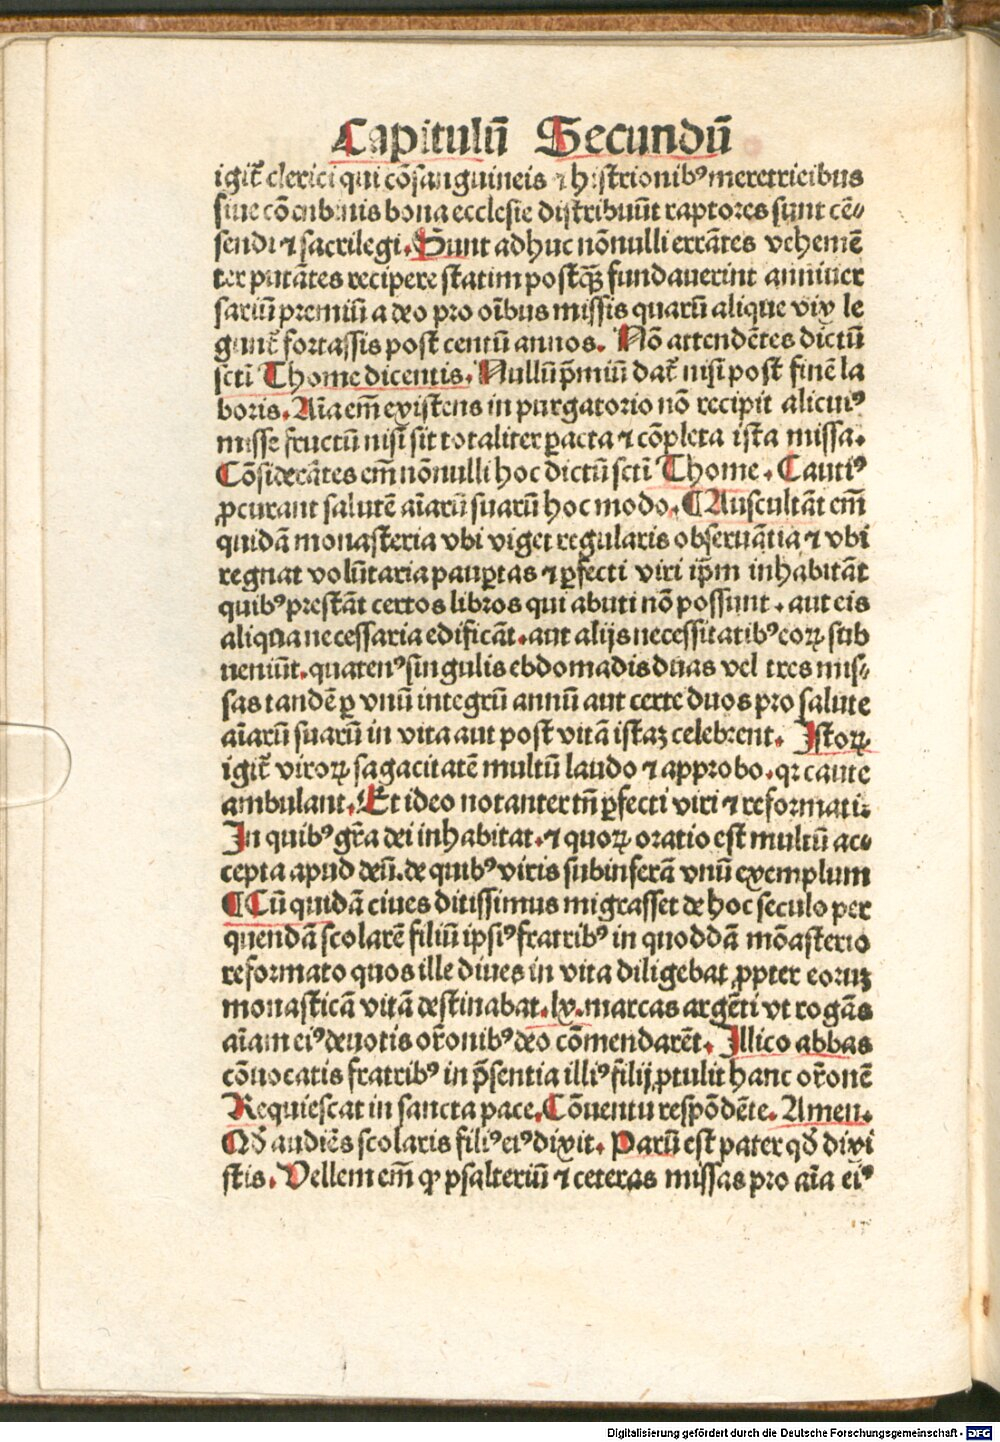 Capitulū Secundū
igit᷑ clerici qui cōsanguineis ⁊ histrionibꝰ meretricibus
siue cōcubinis bona ecclesie distribuūt raptores sunt cē⸗
sendi ⁊ sacrilegi. Sunt adhuc nōnulli errātes vehemē
ter putātes recipere statim postq̄ȝ fundauerint anniuer
sariū premiū a deo pro oībus missis quarū alique vix le
gunt᷑ fortassis post centū annos. Nō attendētes dictū
scti Thome dicentis. Nullū p̄miū dat᷑ nisi post finē la
boris. Aīa em̄ existens in purgatorio nō recipit alicuiꝰ
misse fructū nisi sit totaliter ꝑacta ⁊ cōpleta ista missa.
Cōsiderātes em̄ nōnulli hoc dictū scti Thome. Cautiꝰ
ꝓcurant salutē aīarū suarū hoc modo. ¶ Auscultāt em̄
quidā monasteria vbi viget regularis obseruātia ⁊ vbi
regnat volūtaria pauꝑtas ⁊ ꝑfecti viri ip̄m inhabitāt
quibꝰ prestāt certos libros qui abuti nō possunt. aut eis
aliqua necessaria edificāt. aut alijs necessitatibꝰ eoꝝ sub
ueniūt. quatenꝰ singulis ebdomadis duas vel tres mis⸗
sas tandē ꝑ vnū integrū annū aut certe duos pro salute
aīarū suarū in vita aut post vitā istaȝ celebrent. Istoꝝ
igit᷑ viroꝝ sagacitatē multū laudo ⁊ approbo. qꝛ caute
ambulant. Et ideo notanter tn̄ ꝑfecti viri ⁊ reformati.
In quibꝰ gr̄a dei inhabitat. ⁊ quoꝝ oratio est multū ac⸗
cepta apud deū. de quibꝰ viris subinferā vnū exemplum
¶ Cū quidā ciues ditissimus migrasset de hoc seculo per
quendā scolarē filiū ipsiꝰ fratribꝰ in quoddā mōasterio
reformato quos ille diues in vita diligebat ꝓpter eorum
monasticā vitā destinabat. lx. marcas argēti vt rogās
aīam eiꝰ deuotis or̄onibꝰ deo cōmendarēt. Illico abbas
cōuocatis fratribꝰ in p̄sentia illiꝰ filij ꝓtulit hanc or̄onē
Requiescat in sancta pace. Cōuentu respōdēte. Amen.
Qđ audiēs scolaris filiꝰ eiꝰ dixit. Parū est pater qđ dixi
stis. Vellem em̄ ꝙ psalteriū ⁊ ceteras missas pro aīa eiꝰ
Digitalisierung gefördert durch die Deutsche Forschungsgemeinschaft - DFG